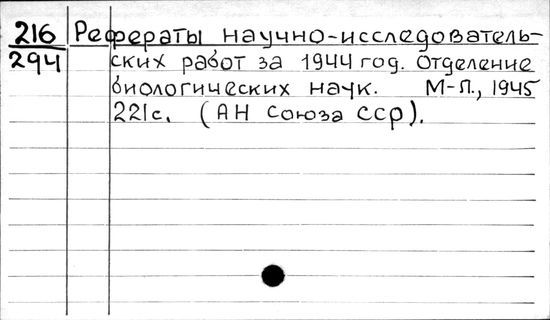 216 Рефераты научно-исследователь-
294 ских работ за 1944 год. Отделение
биологических наук. М-Л., 1945
221с. (АН Союза ССР).